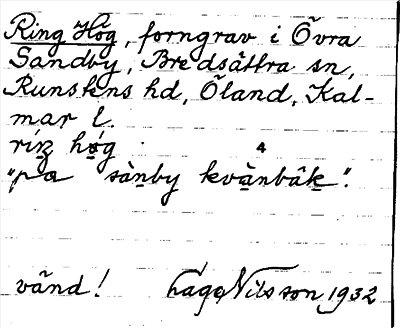 Ring Hög, forngrav i Övra
Sandby, Bredsättra sn,
Runstens hd, Öland, Kal-
mar l.
ríŋ hǿg
4
"pa sàṉby kvànbâk".
vänd! Hage Nilsson 1932